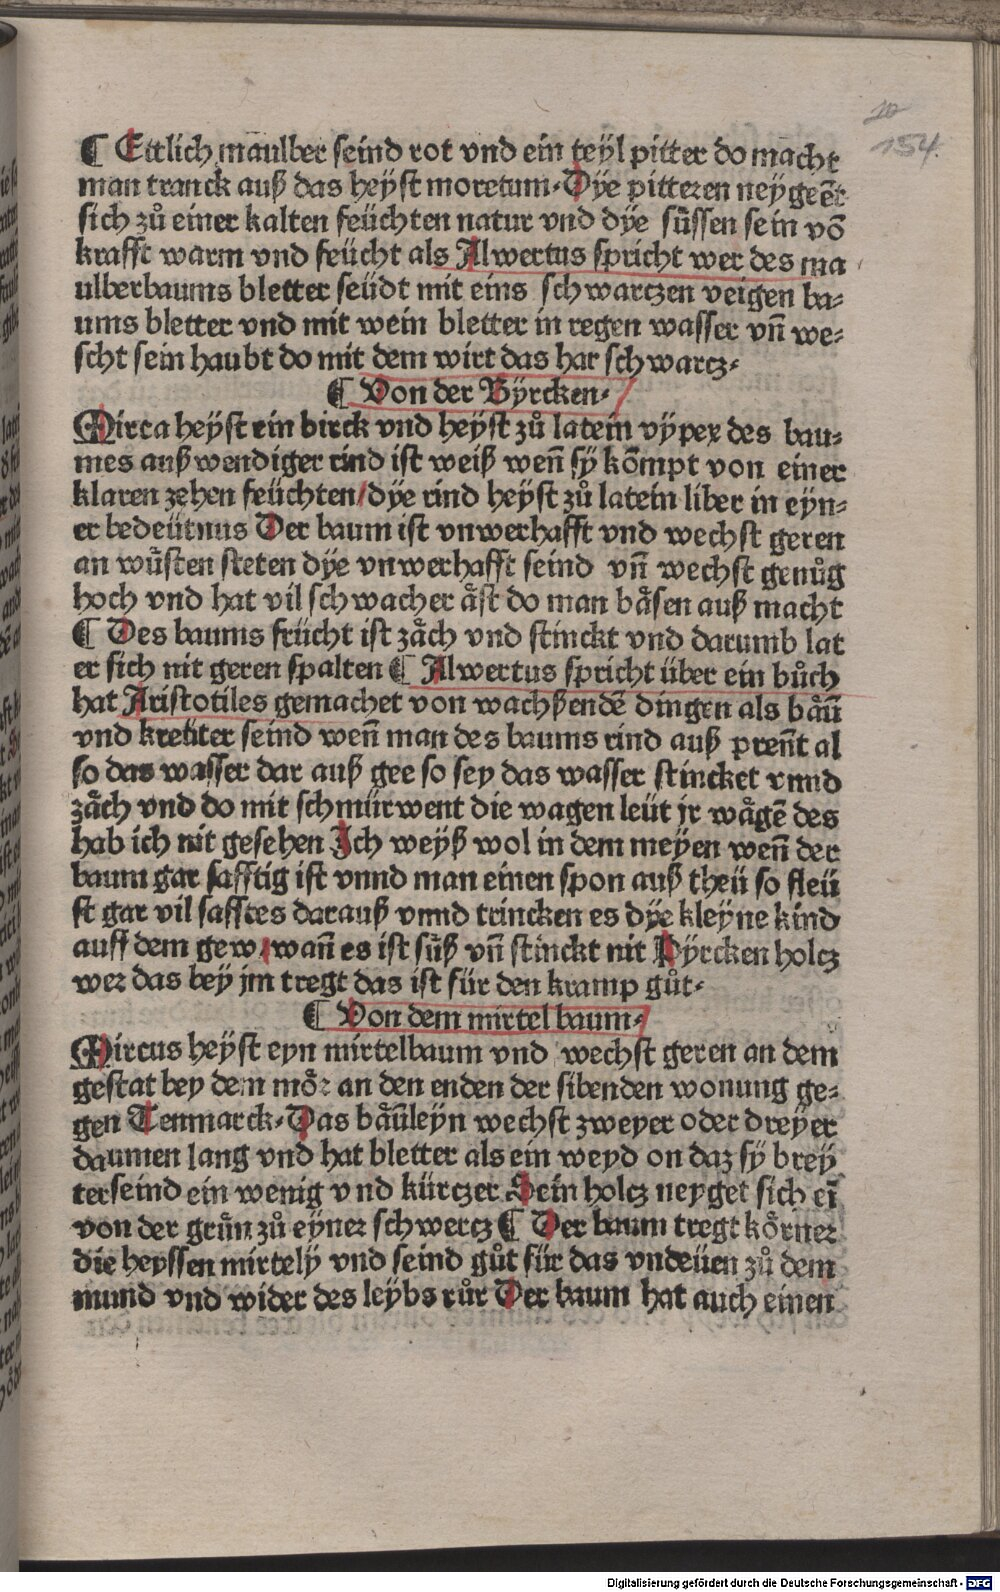 10
154.
¶ Ettlich maulber seind rot vnd ein teyl pitter do macht
man tranck auß das heyst moretum. Dye pitteren neygeēt
sich zů einer kalten feüchten natur vnd dye süssen sein vō
krafft warm vnd feücht als Alwertus spricht wer des ma
ulberbaums bletter seüdt mit eins schwartzen veigen ba⸗
ums bletter vnd mit wein bletter in regen wasser vn̄ we⸗
scht sein haubt do mit dem wirt das har schwartz.
¶ Von der Byrcken.
Mirca heyst ein birck vnd heyst zů latein vyper des bau⸗
mes außwendiger rind ist weiß wen̄ sy kōmpt von einer
klaren zehen feüchten/dye rind heyst zů latein liber in eyn⸗
er bedeütnus Der baum ist vnwerhafft vnd wechst geren
an wůsten steten dye vnwerhafft seind vn̄ wechst genůg
hoch vnd hat vil schwacher aͤst do man baͤsen auß macht
¶ Des baums frücht ist zaͤch vnd stinckt vnd darumb lat
er sich nit geren spalten ¶ Alwertus spricht über ein bůch
hat Aristotiles gemachet von wachßendē dingen als baͤūi
vnd kreüter seind wen̄ man des baums rind auß pren̄t al
so das wasser dar auß gee so sey das wasser stincket vnnd
zaͤch vnd do mit schmürwent die wagen leüt jr waͤgē des
hab ich nit gesehen Ich weyß wol in dem meyen wen̄ der
baum gar safftig ist vnnd man einen spon auß theü so fleü
st gar vil safftes darauß vnnd trincken es dye kleyne kind
auff dem gew, wan̄ es ist süß vn̄ stinckt nit Pyrcken holcz
wer das bey jm tregt das ist für den kramp gůt.
¶ Von dem mirtel baum.
Mircus heyst eyn mirtelbaum vnd wechst geren an dem
gestat bey dem moͤr an den enden der sibenden wonung ge⸗
gen Tenmarck. Das baͤūleyn wechst zweyer oder dreyer
daumen lang vnd hat bletter als ein weyd on daz sy brey
terseind ein wenig vnd kürczer Sein holcz neyget sich eī
von der grün zů eyner schwercz ¶ Der baum tregt koͤrner
die heyssen mirtely vnd seind gůt für das vndeüen zů dem
mund vnd wider des leybs růr Der baum hat auch einen
Digitalisierung gefördert durch die Deutsche Forschungsgemeinschaft - DFG